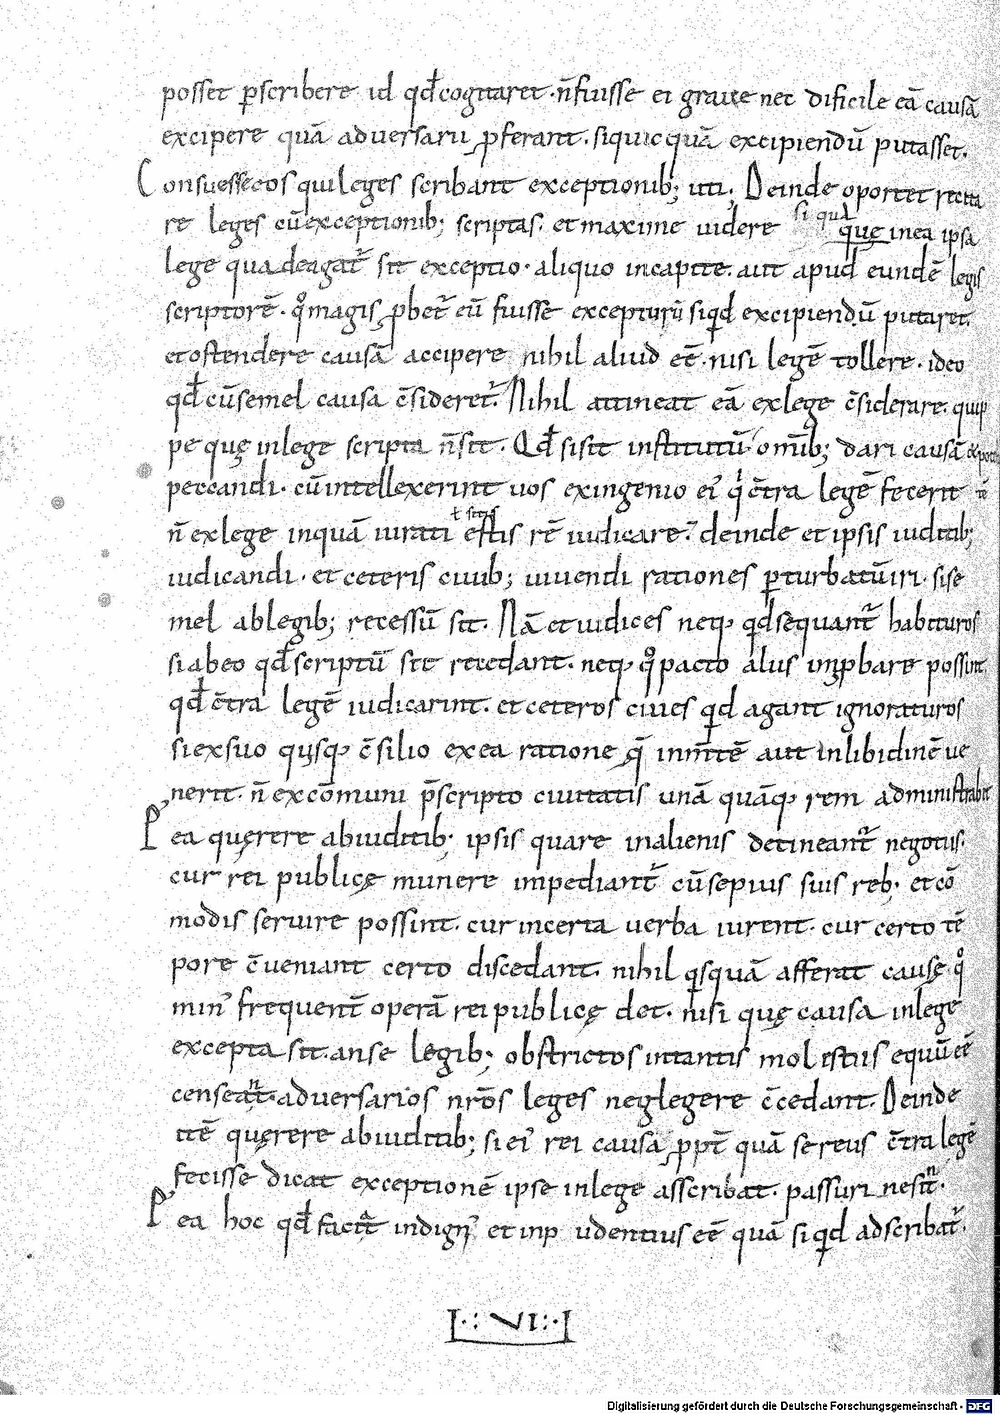 posset p̱scribere id qđ cogitaret. n̄ fuisse ei graue nec dificile eā causā
excipere quā aduersarii ꝓferant. siquicquā excipiendū putasset.
Consuesse eos qui leges scribant exceptionib; uti. Deinde oportet recita
re leges cū exceptionib; scriptas. et maxime uidere si qua quę in ea ipsa
lege qua de agat᷒ sit exceptio. aliquo in capite. aut apud eundē legis
scriptorē. q̊ magis ꝓbet᷒ eū fuisse excepturū siq̇d excipiendū putaret.
et ostendere causā accipere nihil aliud eē. nisi legē tollere. ideo
qđ cū semel causa c̄sideret᷒. Nihil attineat eā ex lege c̄siderare. quip
pe quę in lege scripta n̄ sit. Qđ si sit institutū omīb; dari causā & potest
peccandi. cū intellexerint uos ex ingenio ei᷒ q̇ c̄tra legē fecerit
n̄ ex lege in quā iurati ł sitis estis rē iudicare. deinde et ipsis iudicib;
iudicandi. et ceteris ciuib; uiuendi rationes p̱turbatū iri. si se
mel ab legib; recessū sit. Nā et iudices neq; q̇d sequant᷒ habituros
si ab eo qđ scriptū sit recedant. neq; q̊ pacto aliis inꝓbare possint
qđ c̄tra legē iudicarint. et ceteros ciues q̇d agant ignoraturos
si ex suo quisq; c̄silio ex ea ratione q̄ in m̄tē aut in libidinē ue
nerit. n̄ ex cōmuni p̄scripto ciuitatis unā quāq; rem administrabit
P᷒ea quęrere ab iudicib; ipsis quare in alienis detineant᷒ negotiis.
cur rei publicę munere impediant᷒ cū sepius suis reb; et cō
modis seruire possint. cur in certa uerba iurent. cur certo tē
pore c̄ueniant certo discedant. nihil q̇squā afferat causę q̊
min᷒ frequent̄ operā rei publicę det. nisi quę causa in lege
excepta sit. an se legib; obstrictos in tantis molestiis equū eē
censeant. aduersarios nr̄os leges neglegere c̄cedant. Deinde
itē quęrere ab iudicib; si ei᷒ rei causā ꝓpt̄ quā se reus c̄tra legē
fecisse dicat exceptionē ipse in lege asscribat. passuri ne sint.
P᷒ea hoc qđ faciat indign᷒ et inpudentius eē quā si q̇d adscribat᷒.
VI
Digitalisierung gefördert durch die Deutsche Forschungsgemeinschaft - DFG